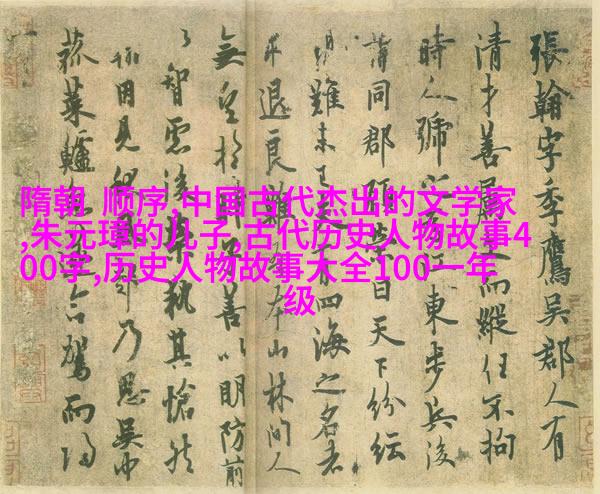 張翰字季鷹吳郡人有
清才善屬文而縱任不拘
時人號為江東步兵後
謂同郡顧榮曰天下紛紜
禍難未已夫有四海之名者
求退良難吾本山林間人
無望於時子善以明防前
以智慮後榮執其愴然
翰因見秋風起乃思吳中
菰菜鱸魚遂命駕而歸
隋朝 顺序,中国古代杰出的文学家
,朱元璋的儿子,古代历史人物故事4
00字,历史人物故事大全100一年
级